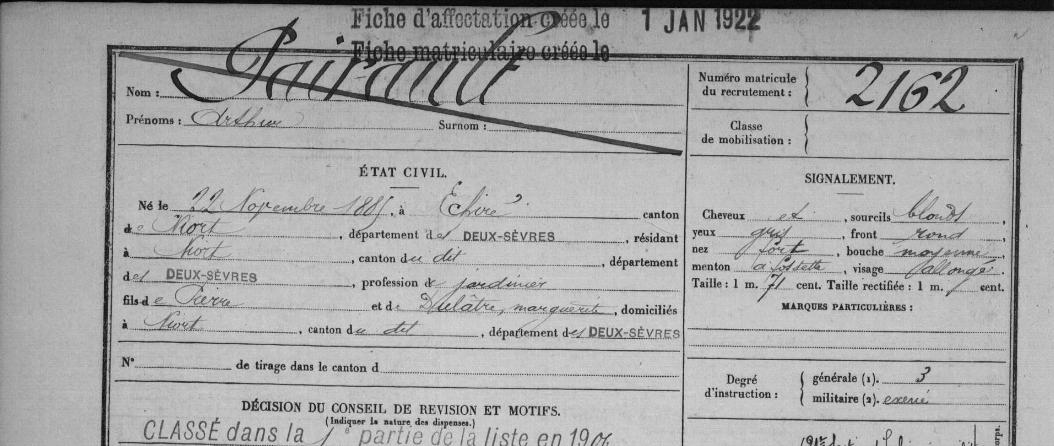 Fiche d'affectation créée le 1 JAN 1922
Fiche matriculaire créée le
Nom : Pairault
Prénoms : Arthur Surnom :
Numéro matricule du recrutement : 2162
Classe de mobilisation :
ÉTAT CIVIL.
Né le 22 Novembre 1885, à Echiré canton
de Niort, département des DEUX-SÈVRES, résidant
à Niort, canton du dit, département
des DEUX-SÈVRES, profession de jardinier
fils de Pierre et de marguerite, domiciliés
à Niort, canton du dit, département des DEUX-SÈVRES
N° de tirage dans le canton d
SIGNALEMENT.
Cheveux et, sourcils blonds,
yeux gris, front rond,
nez fort, bouche moyenne,
menton à fossette, visage allongé.
Taille : 1 m. 71 cent. Taille rectifiée : 1 m. cent.
MARQUES PARTICULIÈRES :
Degré d'instruction :
générale (1). 3
militaire (2). exercé
DÉCISION DU CONSEIL DE REVISION ET MOTIFS.
(Indiquer la nature des dispenses.)
CLASSÉ dans la 1e partie de la liste en 1906
corps.